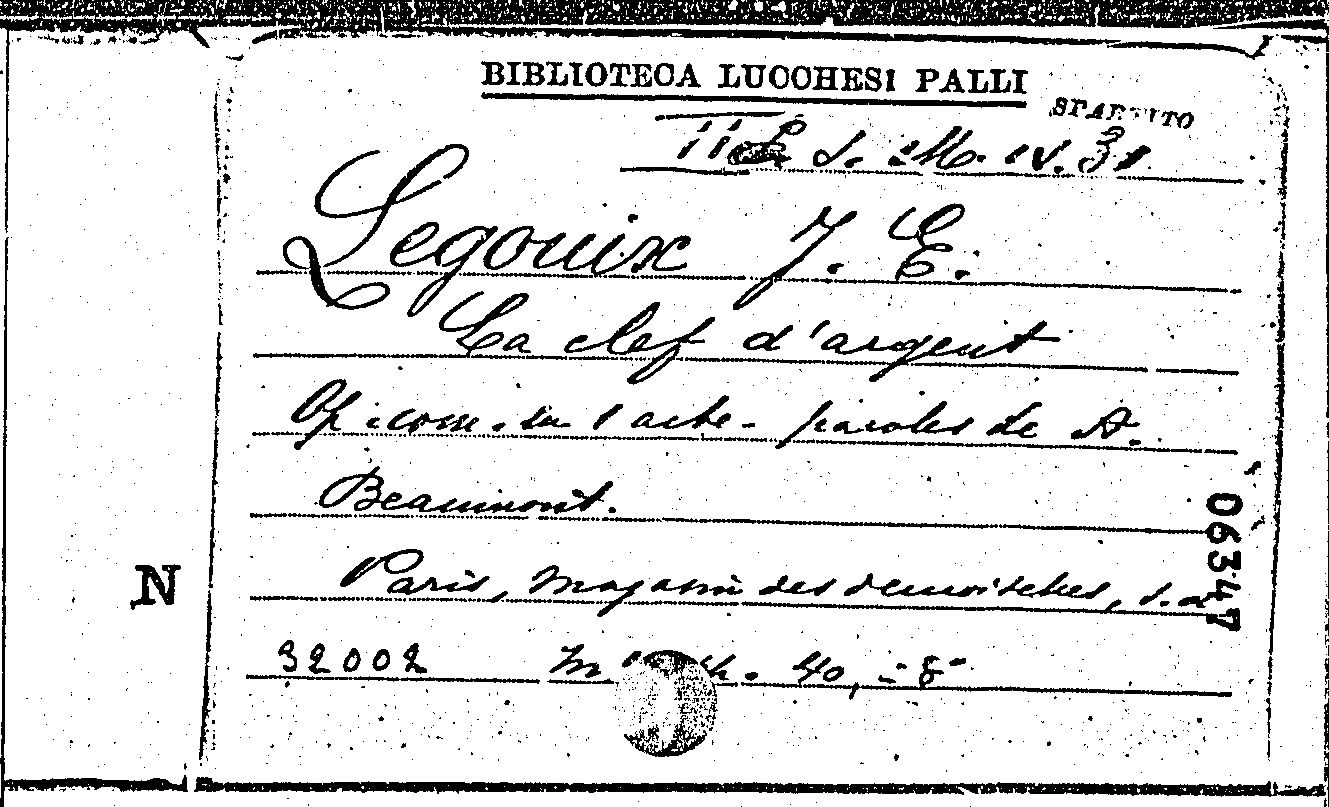 BIBLIOTECA LUCCHESI PALLI
SPARTITO
S. M. IV. 31
Legouix J. E.
La clef d'argent
Op. com. en 1 acte - paroles de A.
Beaumont.
Paris, Magasin des demoiselles, s. d.
32002 40, in 8°
06347
N